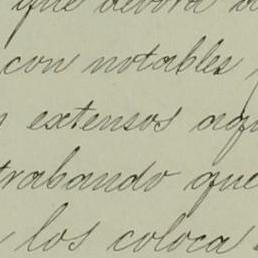 que devora
con notables
extensos aqu
trabando que
los coloca